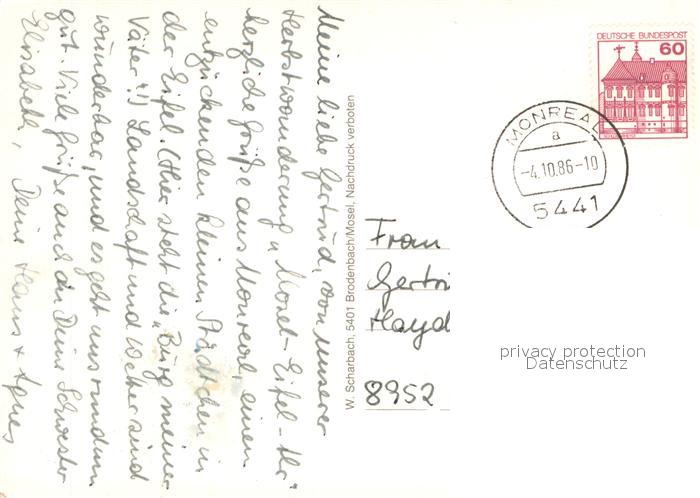 Meine liebe Gertrud, von unserer
Herbstwanderung u. Mosel-Eifel-
herzliche Grüße aus Monreal, einem
entzückenden kleinen Städtchen in
der Eifel. (Hier steht die "Burg meiner
Väter"!) Landschaft und Wetter sind
wunderbar, und es geht uns rundum
gut. Viele Grüße auch an Deine Schwester
Elisabeth, Deine Hans + Agnes
W. Scharbach, 5401 Brodenbach/Mosel, Nachdruck verboten
DEUTSCHE BUNDESPOST
60
MONREAL
a
-4.10.86-10
5441
Frau
Gertr
Hayd
8952
privacy protection
Datenschutz